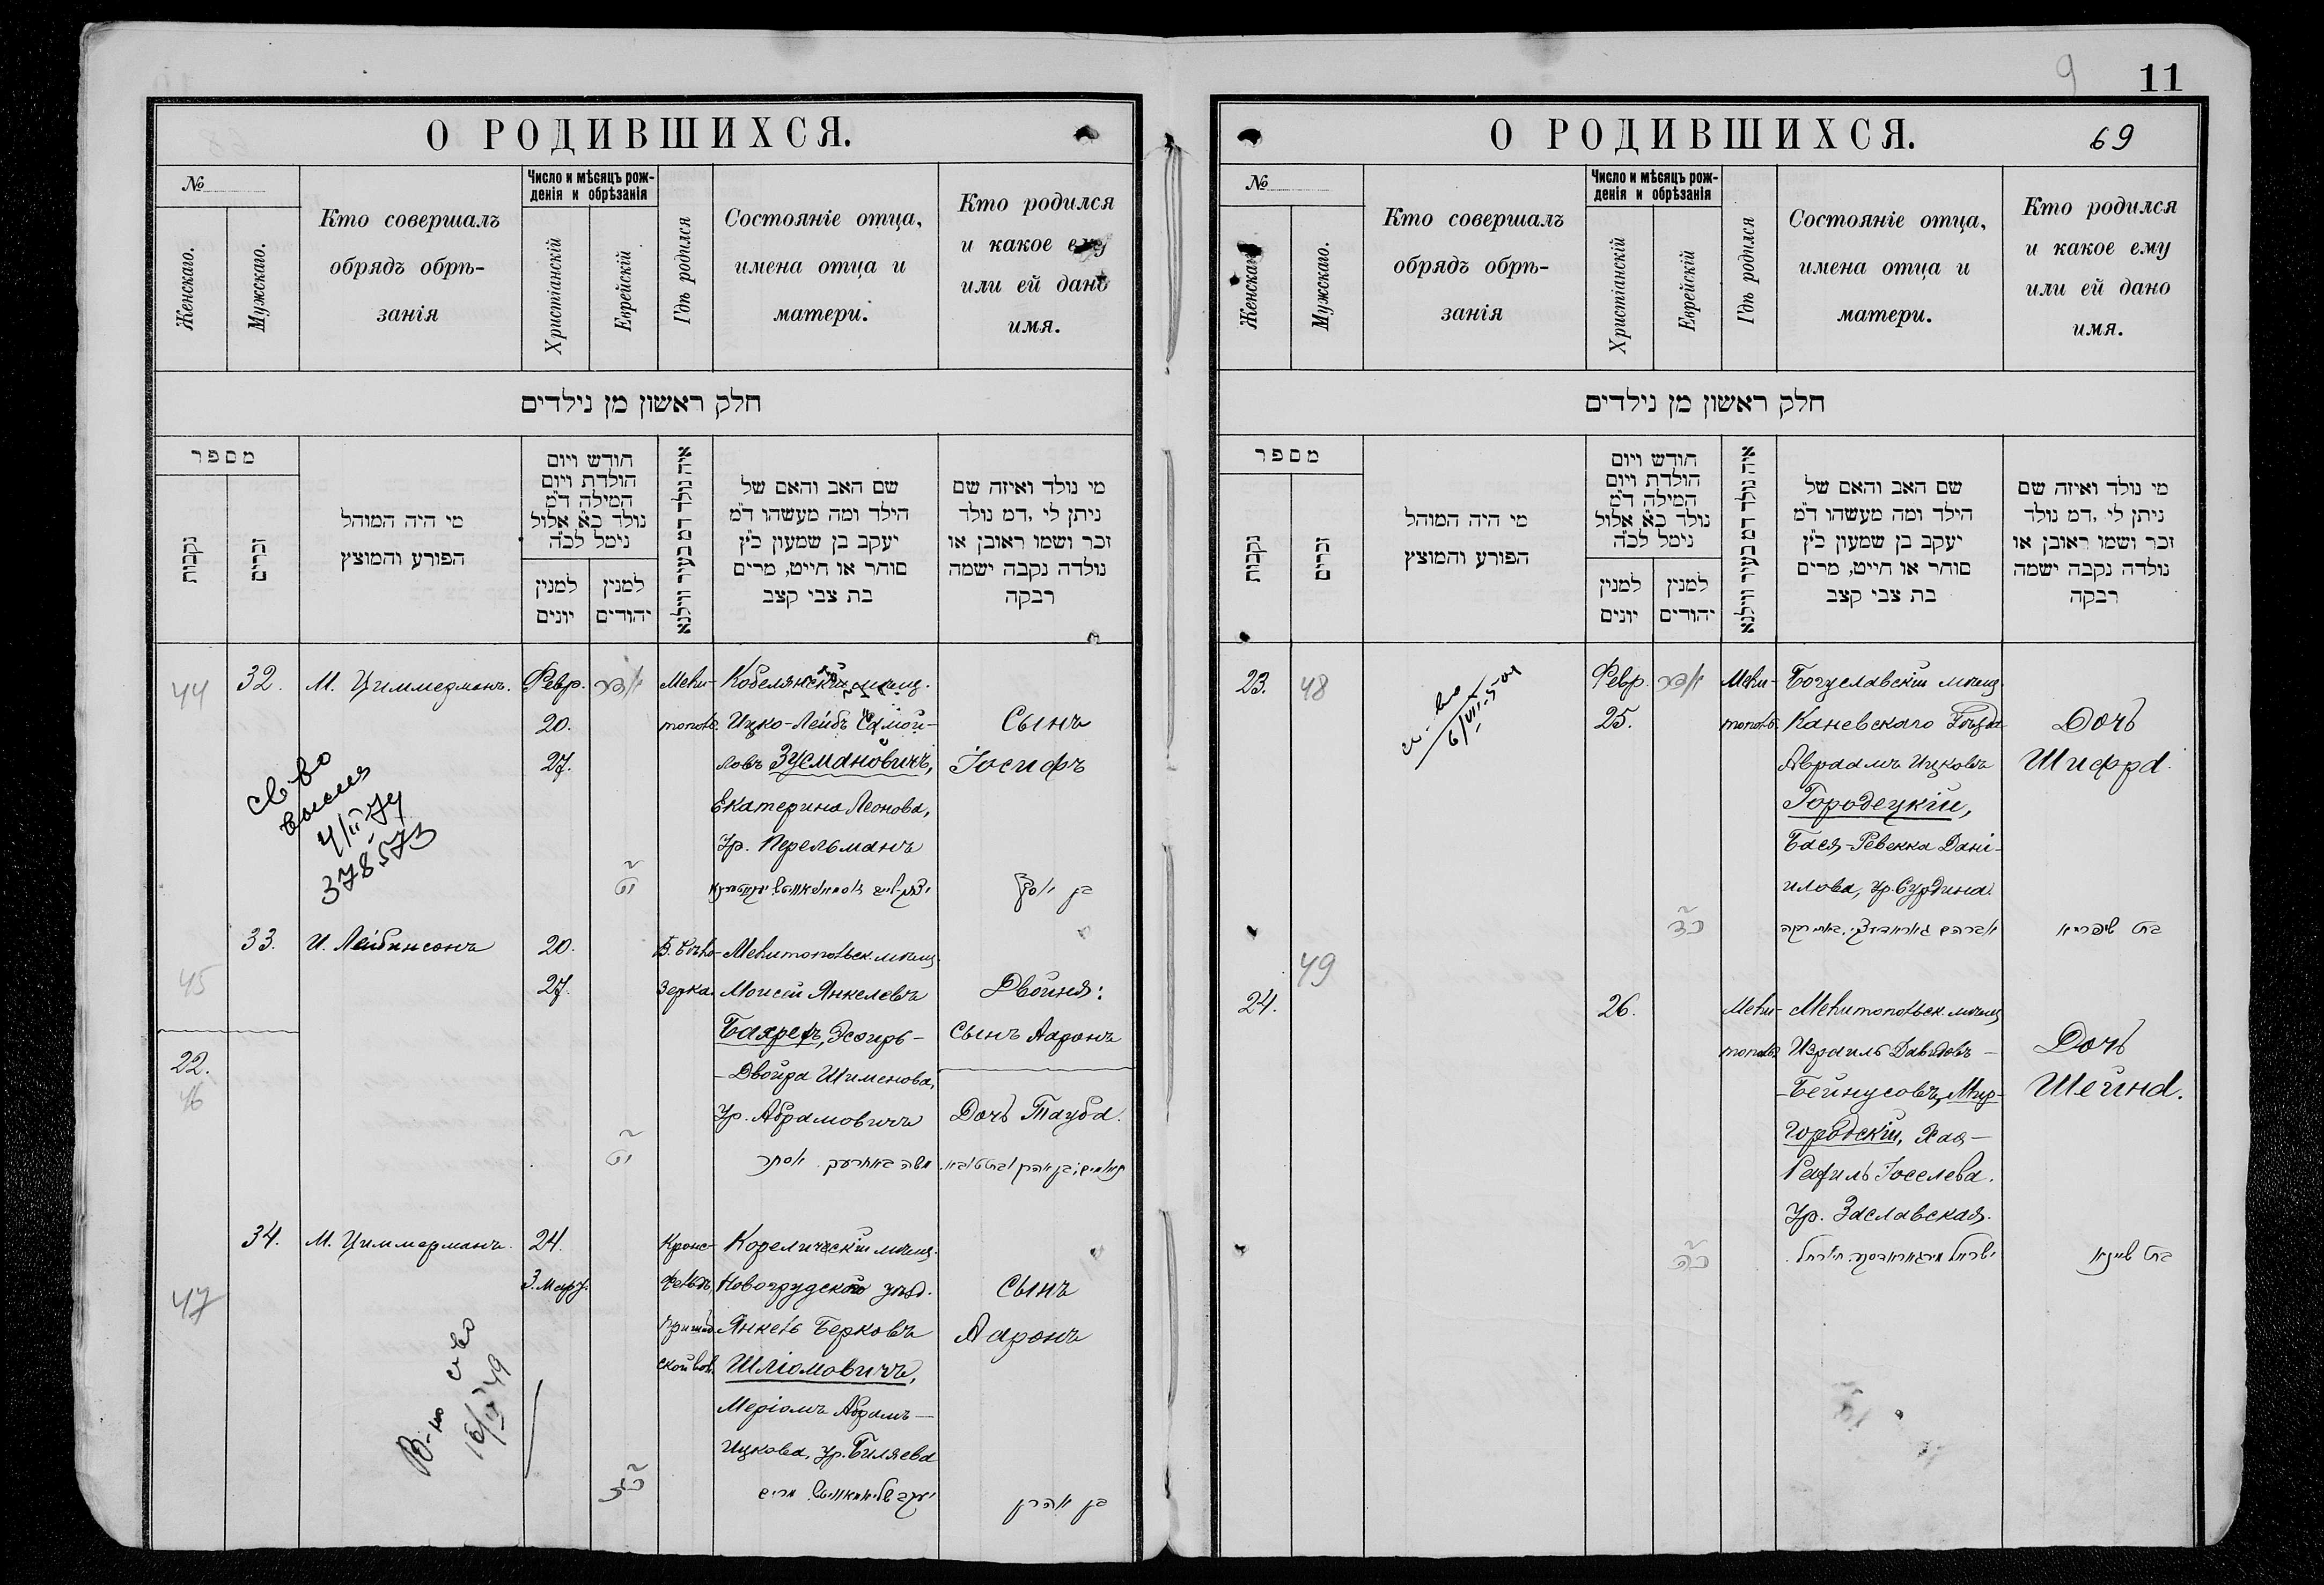 О РОДИВШИХСЯ.
№
Женскаго.
Мужскаго.
Кто совершалъ
обрядъ обрѣ-
занія
Число и мѣсяцъ рож-
денія и обрѣзанія
Христіанскій
Еврейскій
Гдѣ родился
Состояніе отца,
имена отца и
матери.
Кто родился
и какое ему
или ей дано
имя.
חלק ראשון מן נילדים
מספר
נקבות
זכרים
מי היה המוהל
הפורע והמוצץ
חודש ויום
הולדת ויום
המילה ד״מ
נולד כ״א אלול
נימל לכ״ה
למנין
יונים
למנין
יהודים
איה נולד דמ בעיר ווילנא
שם האב והאם של
הילד ומה מעשהו ד״מ
יעקב בן שמעון כ״ץ
סוחר או חייט, מרים
בת צבי קצב
מי נולד ואיזה שם
ניתן לי ,דמ נולד
זכר ושמו ראובן או
נולדה נקבה ישמה
רבקה
44
32.
М. Циммерманъ.
Февр.
20.
27.
Мели-
тополь.
Кобелянскій мѣщ.
Ицко-Лейбъ Самой-
ловъ Зусмановичъ,
Екатерина Леонова,
Ур. Перельманъ
Сынъ
Іосифъ
בן יוסף
св-во
378573
45
33.
И. Лейбинсонъ
20.
27.
Б. Бѣло-
зерка.
Мелитопольск. мѣщ.
Моисей Янкелевъ
Бахрехъ, Эсѳирь-
-Двойра Шименова,
Ур. Абрамовичъ
Двойня:
Сынъ Ааронъ
22.
46
Дочь Тауба.
47
34.
М. Циммерманъ.
24.
3. Март.
Кронс-
фельдъ,
Кореличскій мѣщ.
Новогрудскаго уѣзд.
Янкель Берковъ
Шліомовичъ,
Меріамъ Абрамъ-
Ицкова, ур. Биляева
Сынъ
Ааронъ
בן אהרן
9
11
О РОДИВШИХСЯ.
69
№
Женскаго
Мужскаго.
Кто совершалъ
обрядъ обрѣ-
занія
Число и мѣсяцъ рож-
денія и обрѣзанія
Христіанскій
Еврейскій
Гдѣ родился
Состояніе отца,
имена отца и
матери.
Кто родился
и какое ему
или ей дано
имя.
חלק ראשון מן נילדים
מספר
נקבות
זכרים
מי היה המוהל
הפורע והמוצץ
חודש ויום
הולדת ויום
המילה ד״מ
נולד כ״א אלול
נימל לכ״ה
למנין
יונים
למנין
יהודים
איה נולד דמ בעיר ווילנא
שם האב והאם של
הילד ומה מעשהו ד״מ
יעקב בן שמעון כ״ץ
סוחר או חייט, מרים
בת צבי קצב
מי נולד ואיזה שם
ניתן לי ,דמ נולד
זכר ושמו ראובן או
נולדה נקבה ישמה
רבקה
23.
48
Февр.
25.
Мели-
тополь.
Богуславскій мѣщ.
Каневскаго уѣзда
Авраамъ Ицковъ
Городецкій,
Бася-Ревекка Дані-
илова, ур. Сурдина.
Дочь
Шифра.
בת שיפריא
49
24.
26.
Мели-
тополь
Мелитопольск. мѣщ.
Израиль Давидовъ-
-Бейнусовъ, Мир-
городскій, Хая-
Рахиль Іоселева.
Ур. Заславская.
Дочь
Шейна.
בת שיינא